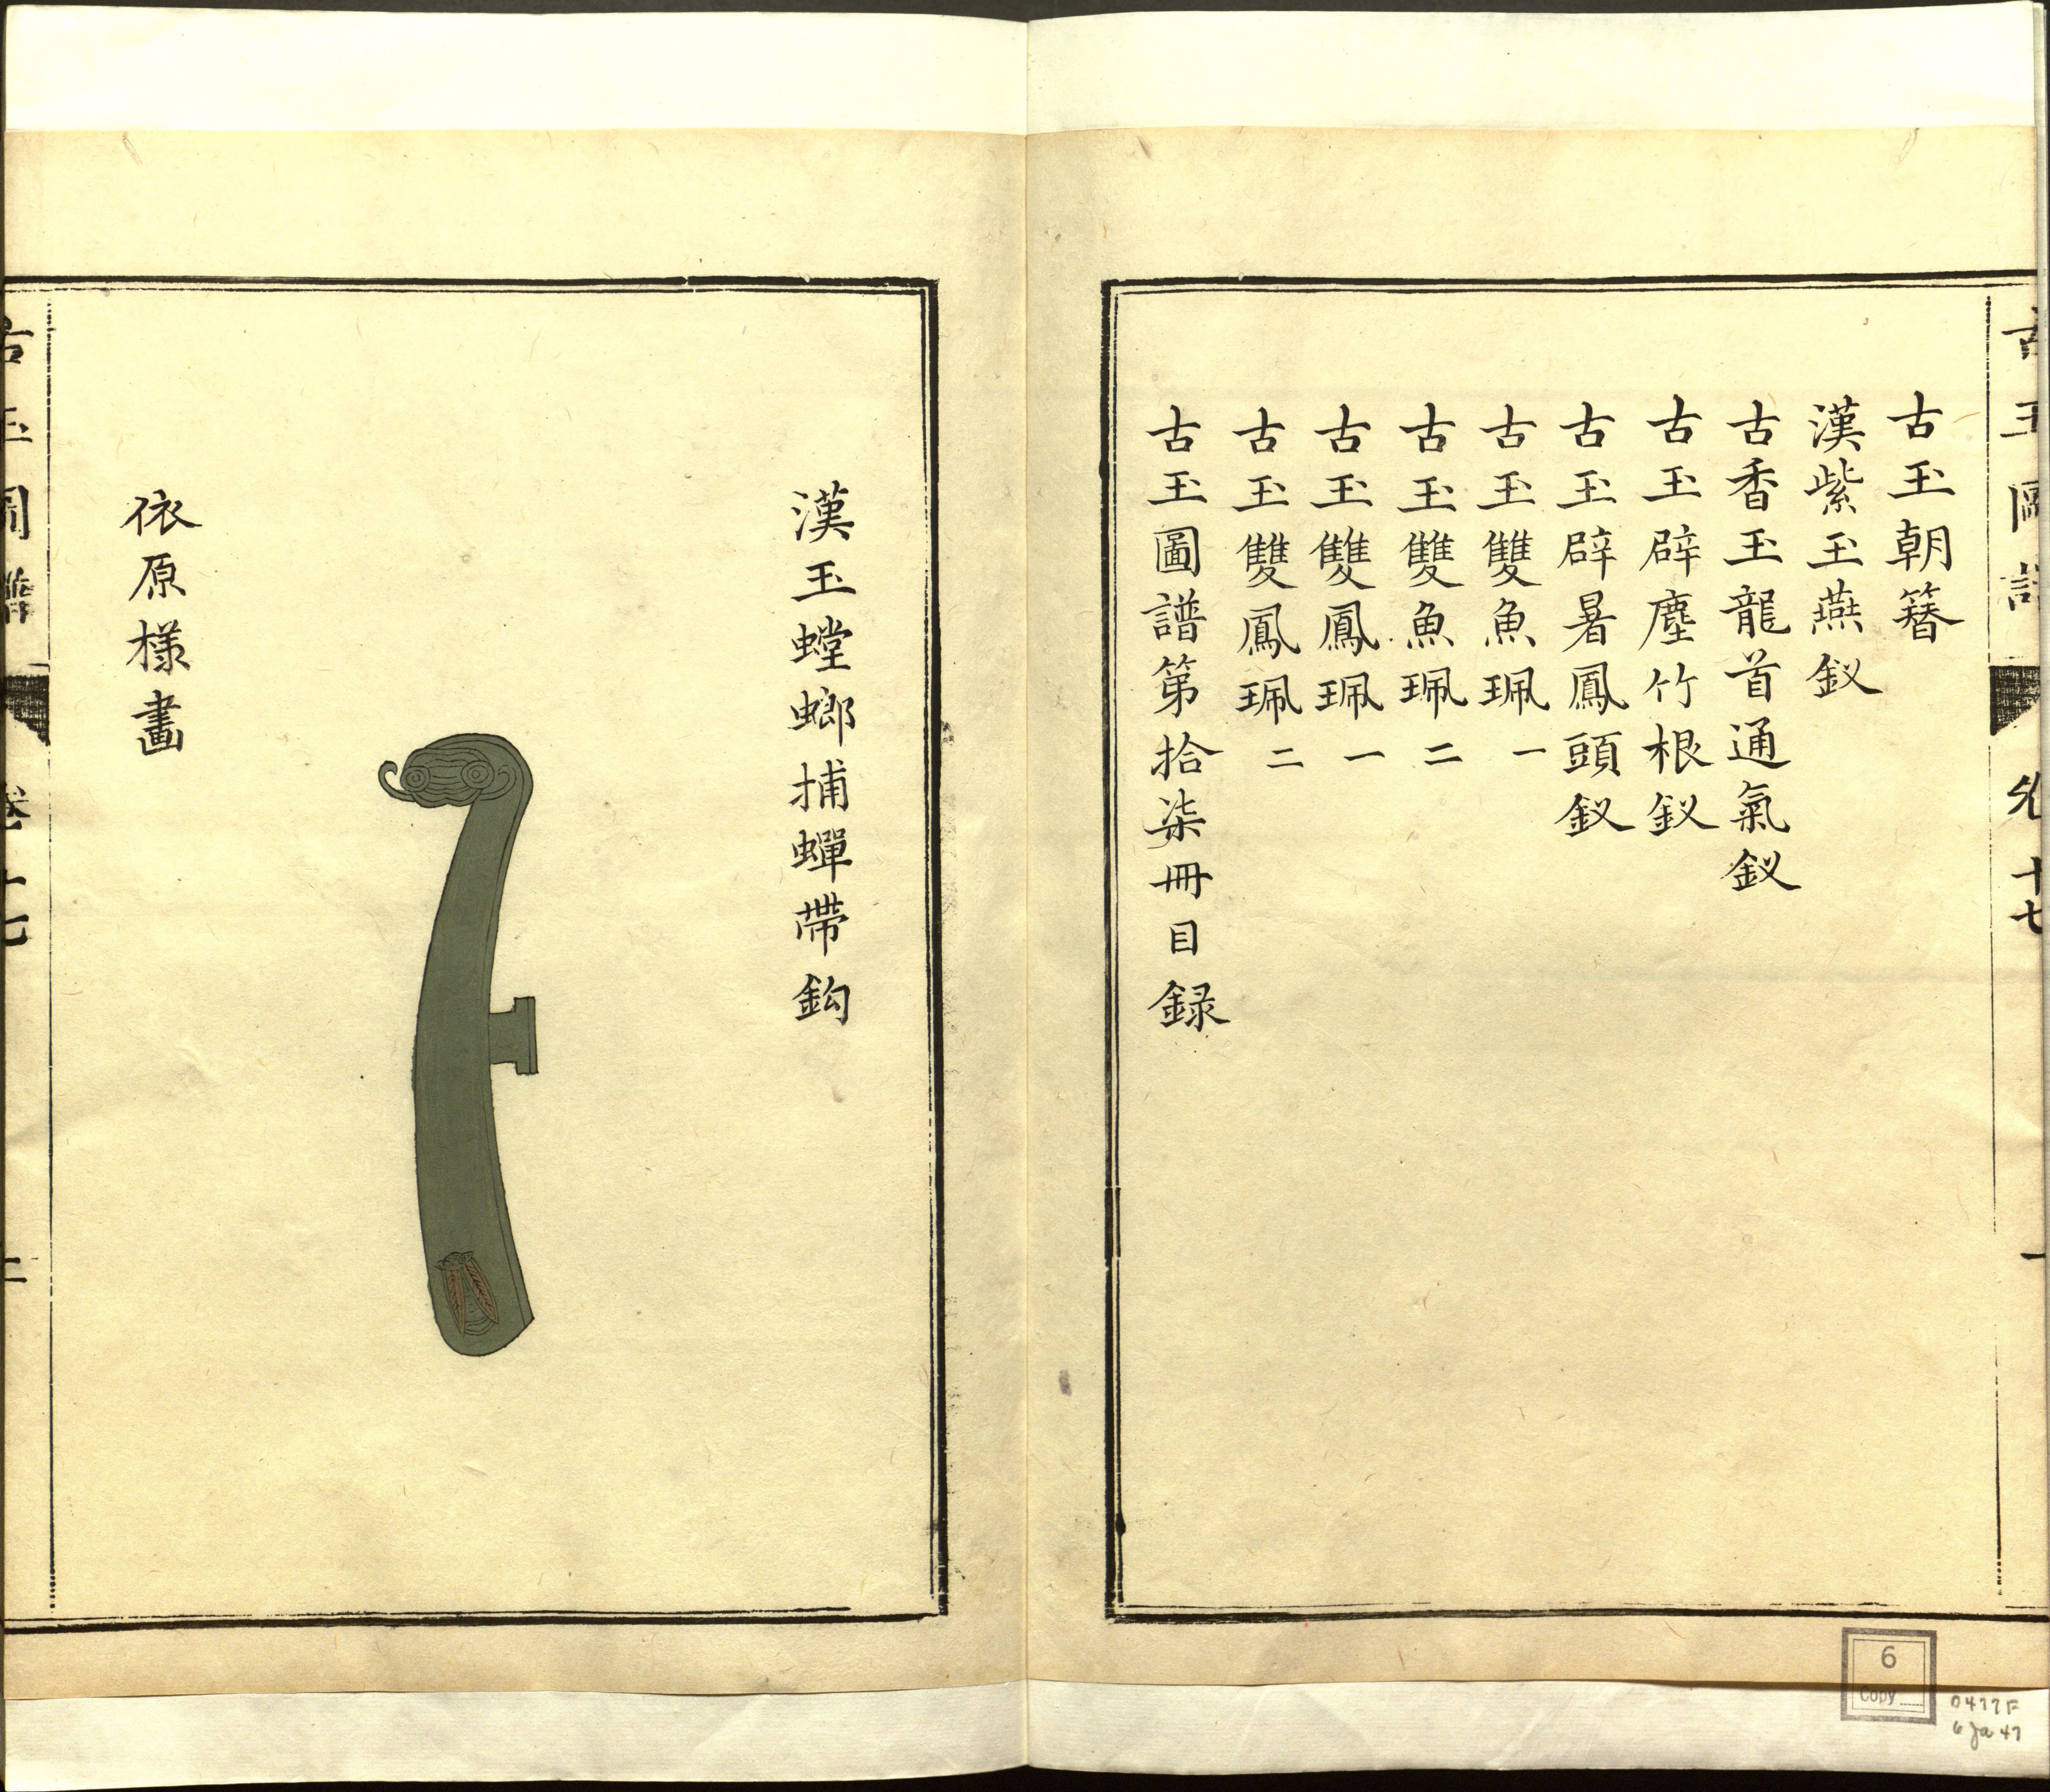 古玉朝簪
漢紫玉燕釵
古香玉龍首通氣釵
古玉辟塵竹根釵
古玉辟暑鳳頭釵
古玉雙魚珮一
古玉雙魚珮二
古玉雙鳳珮一
古玉雙鳳珮二
古玉圖譜第拾柒冊目録
漢玉螳螂捕蟬帶鈎
依原様畫
古玉圖譜 卷十七 一
古玉圖譜 卷十七 二
6
Copy
0477F
6 Ja 47